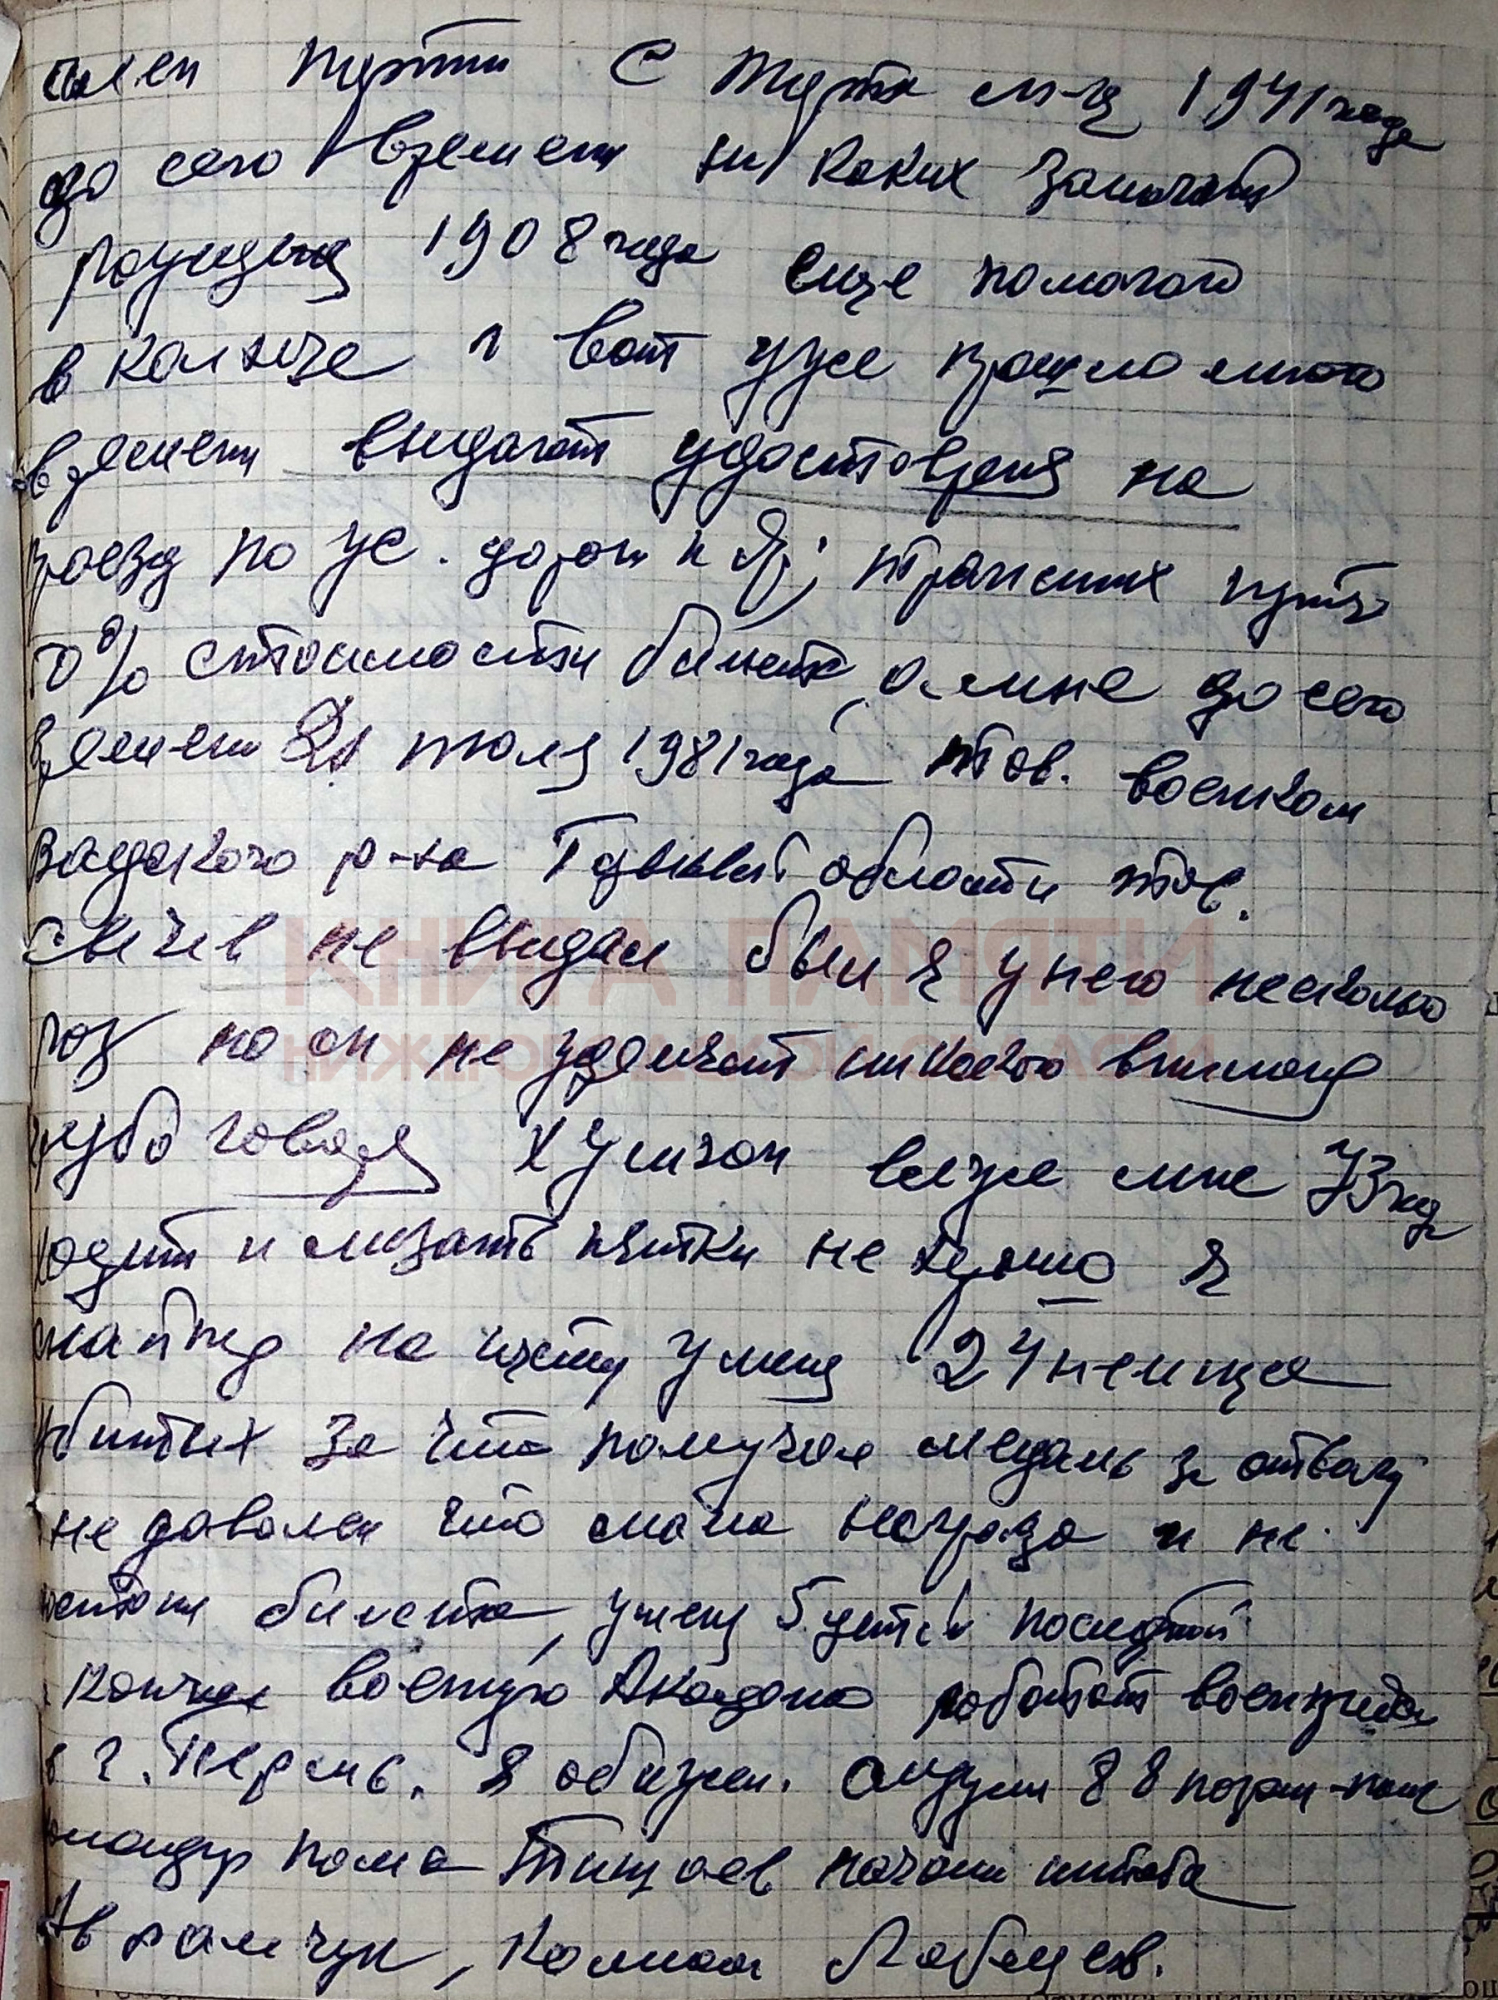 член партии С марта м-ц 1941 года
до сего времени ни каких замечаний
рожденя 1908 года еще помогаю
в колхозе и вот уже прошло много
времени выдают удостоверня на
проезд по ж. дорогам и др; транспорных путях
50% стоимости билета, а мне до сего
времени 21 июля 1981 года тов. военком
Вадского р-на Горьковской области тов.
не выдал был я у него несколько
раз но он не уделяет никакого вниманя
грубо говоря Хулиган веть уже мне 73 год
ходить и лизать пятки не должно я
снайпер на щиту у меня 24 немца
убитых за что получил медаль за отвагу
не доволен что мала награда и не
билета, у меня 5 детей последний
кончил военную Академию работает военпредом
в г. Пермь. Я обижен. служил 88 полк
командир полка начальник штаба
Аврамчук, Лабацев.
КНИГА ПАМЯТИ
НИЖЕГОРОДСКОЙ ОБЛАСТИ